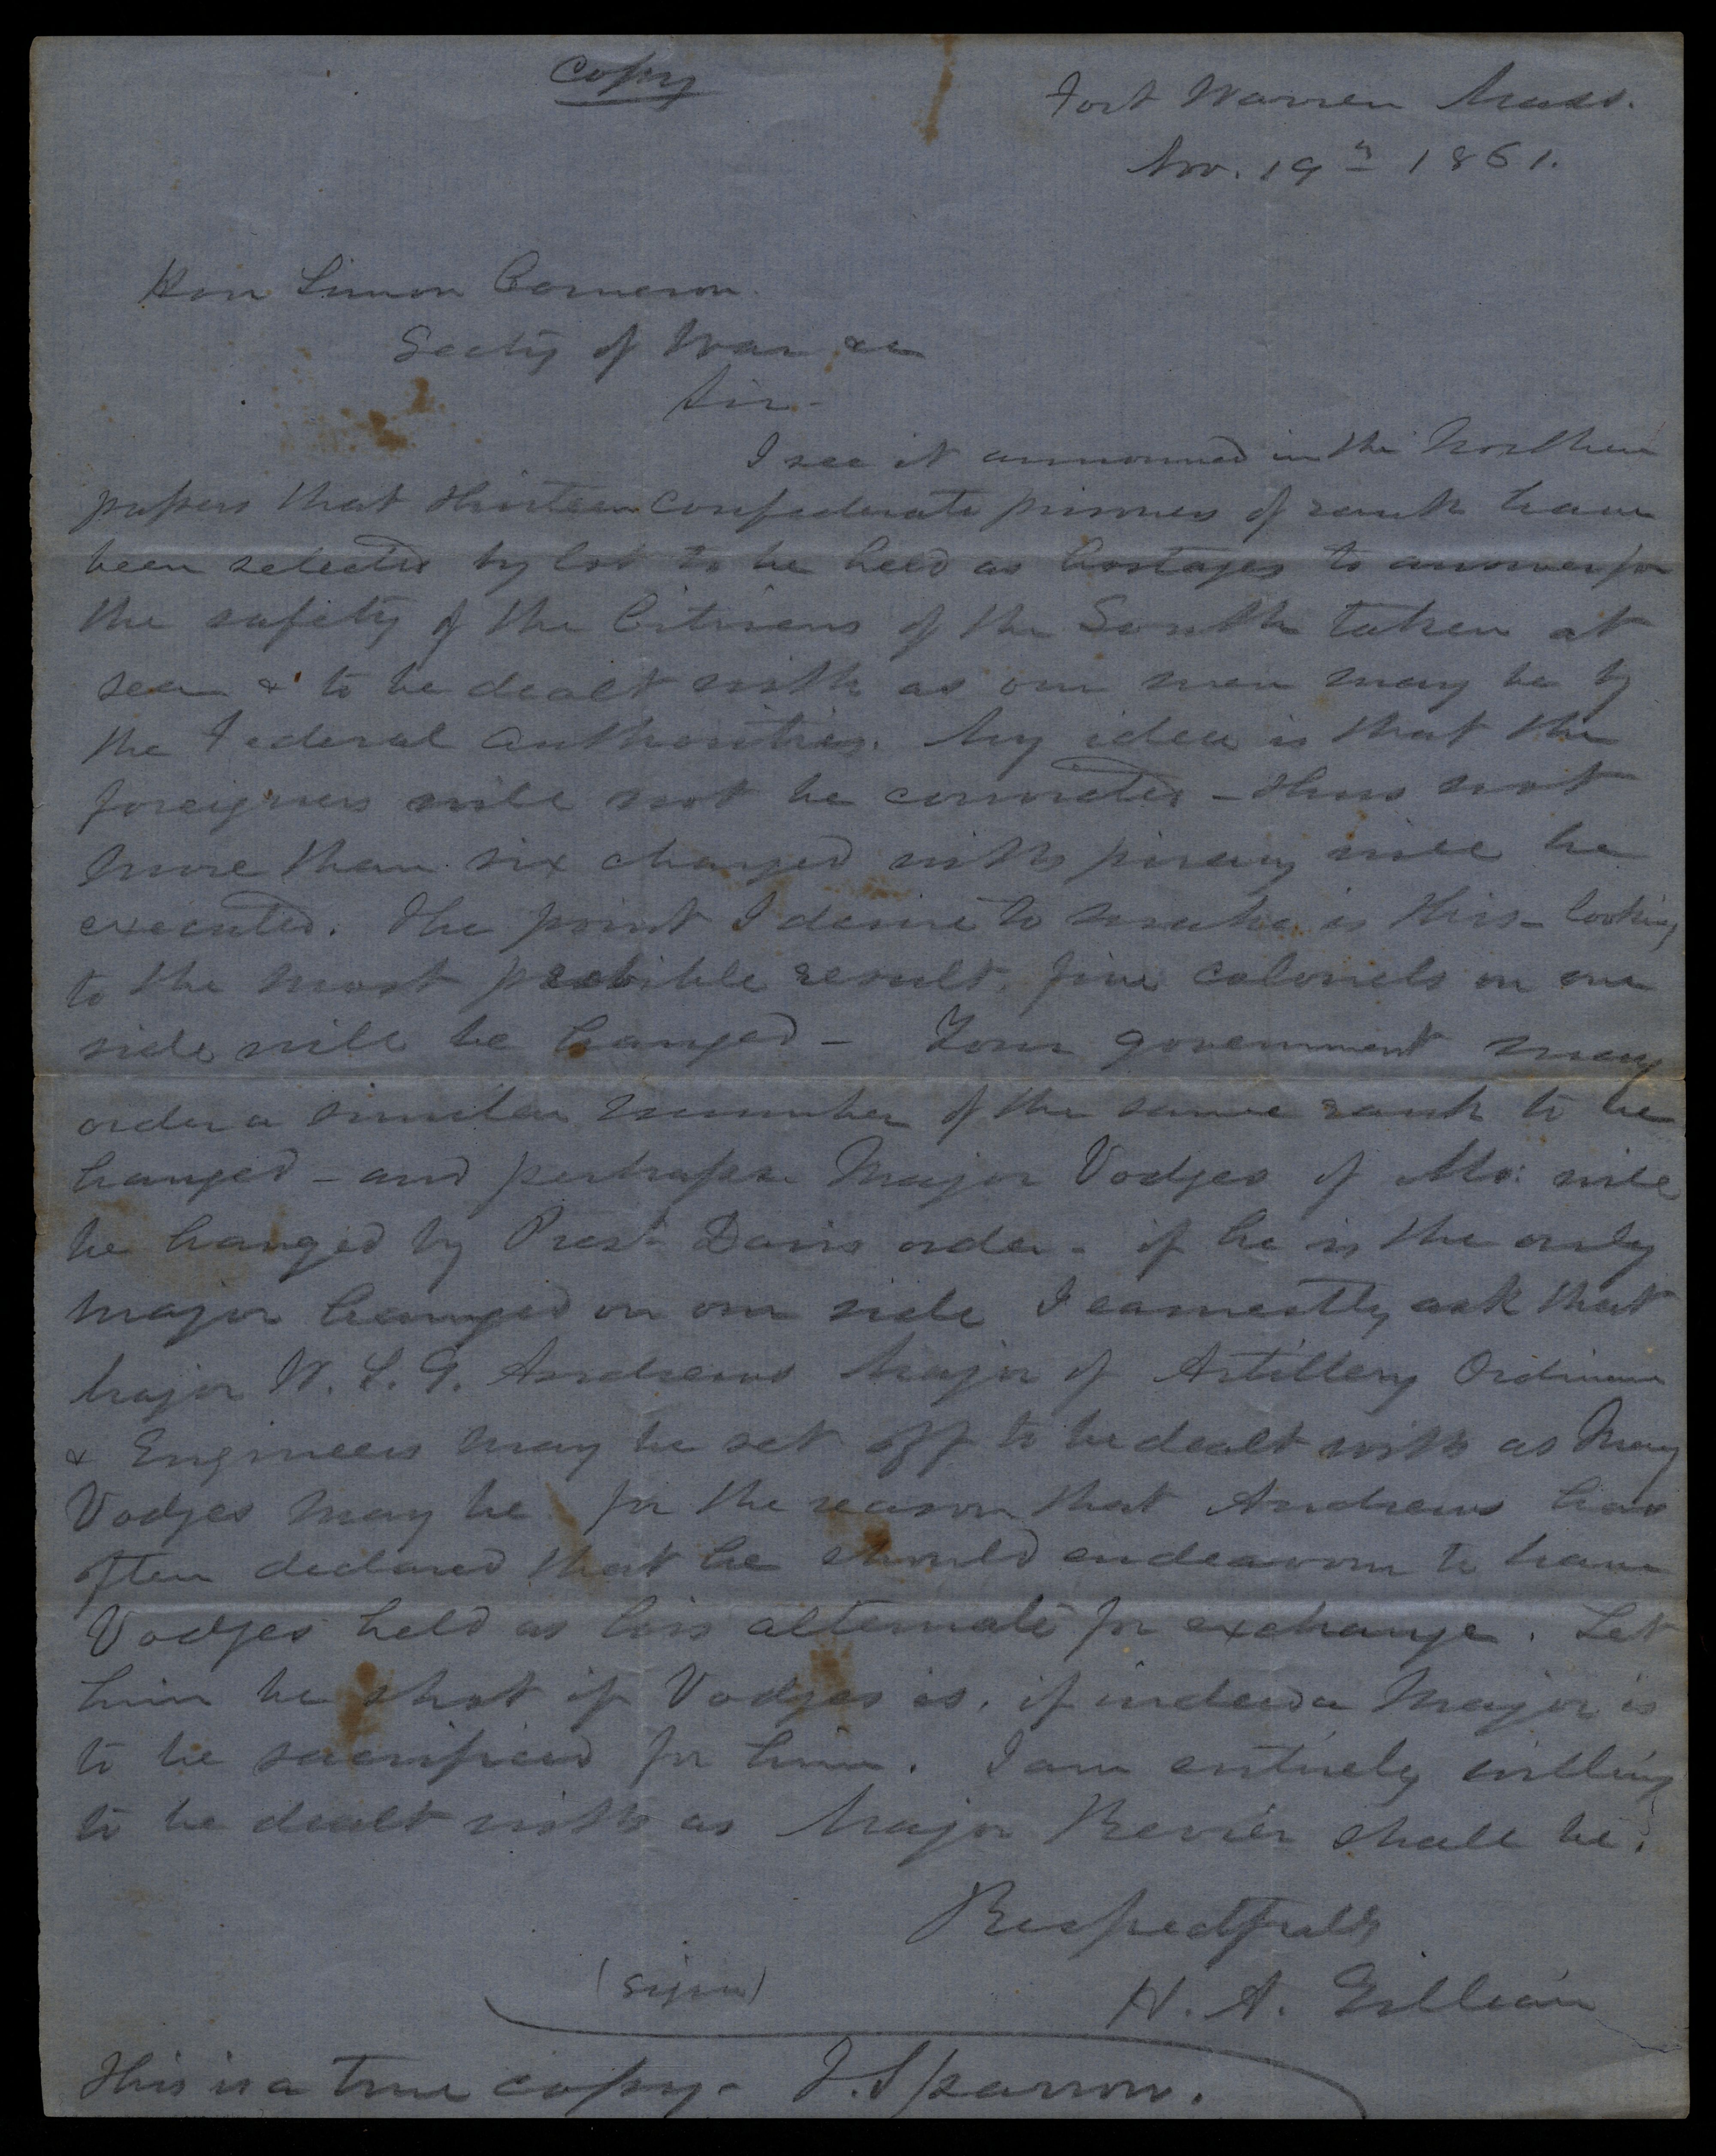 Copy
Fort Warren Mass.
Nov. 19th 1861.
Hon Simon Cameron
Secty of War &c
Sir-
I see it announced in the Northern
papers that thirteen confederate prisoners of rank have
been selected by lot to be held as hostages to answer for
the safety of the Citizens of the South taken at
sea & to be dealt with as our men may be by
the Federal authorities. My idea is that the
foreigners will not be convicted - thus not
more than six charged with piracy will be
executed. The point I desire to make is this - looking
to the most probible result, five colonels on one
side will be hanged - Your government may
order a similar number of the same rank to be
hanged - and perhaps Major Vodges of will
be hanged by Prest Davis order - if he is the only
Major hanged on our side I earnestly ask that
Major W. L. G. Andrews Major of Artillery Ordinance
& Engineers may be set off to be dealt with as Maj
Vodges may be for the reason that Andrews has
often declared that he should endeavour to have
Vodges held as his alternate for exchange. Let
him be shot if Vodges is, if indeed a Major is
to be sacrificed for him. I am entirely willing
to be dealt with as Major Revier shall be.
Respectfully
(sign)
H. A. Gilliam
This is a true copy - T. Sparrow.